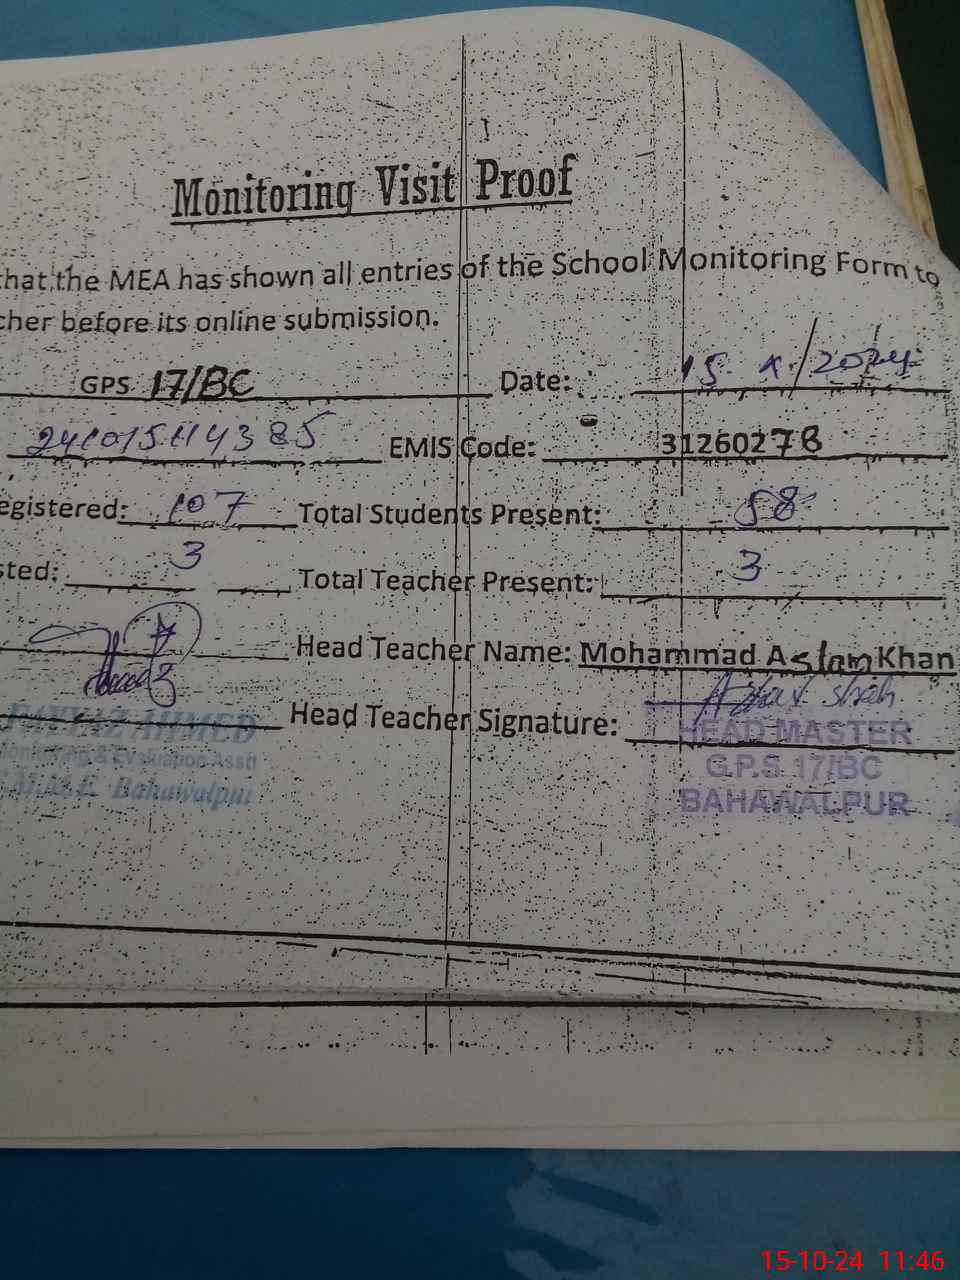 Monitoring Visit Proof
that the MEA has shown all entries of the School Monitoring Form to
cher before its online submission.
GPS 17/BC Date: 15. X./2024
241015114385 EMIS Code: 31260278
egistered: 107 Total Students Present: 58
sted: 3 Total Teacher Present: 3
Head Teacher Name: Mohammad Aslam Khan
Head Teacher Signature:
FAYYAZ AHMED
Monitoring & Evaluation Asstt
Bahawalpur
HEAD MASTER
G.P.S 17/BC
BAHAWALPUR
15-10-24 11:46